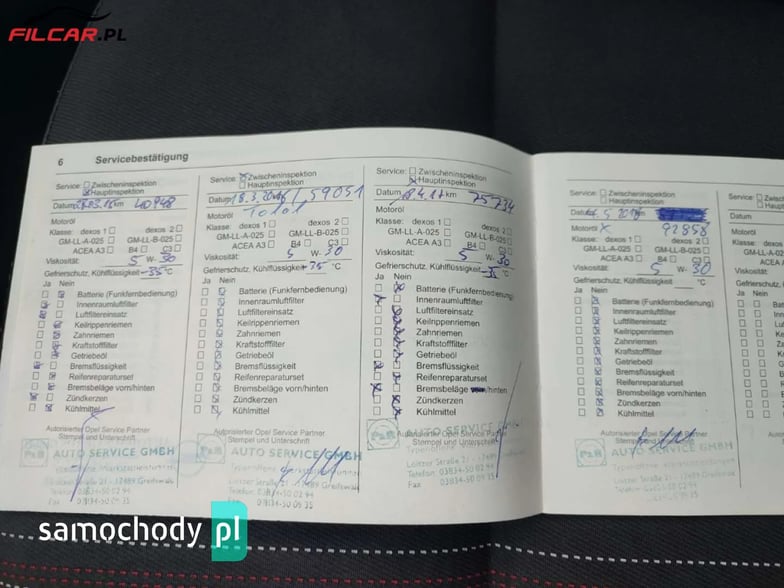 FILCAR.PL
6 Servicebestätigung
Service: Zwischeninspektion
Hauptinspektion
Datum km 40948
Motoröl
Klasse: dexos 1 dexos 2
GM-LL-A-025 GM-LL-B-025
ACEA A3 B4 C3
Viskosität: 5 W- 30
Gefrierschutz, Kühlflüssigkeit -35 °C
Ja Nein
Batterie (Funkfernbedienung)
Innenraumluftfilter
Luftfiltereinsatz
Keilrippenriemen
Zahnriemen
Kraftstofffilter
Getriebeöl
Bremsflüssigkeit
Reifenreparaturset
Bremsbeläge vorn/hinten
Zündkerzen
Kühlmittel
Autorisierter Opel Service Partner
Stempel und Unterschrift
P&B AUTO SERVICE GMBH
03834-50 02 94
03834-50 09 35
Service: Zwischeninspektion
Hauptinspektion
Datum 18.3.2016 59051
Total
Motoröl
Klasse: dexos 1 dexos 2
GM-LL-A-025 GM-LL-B-025
ACEA A3 B4 C3
Viskosität: 5 W- 30
Gefrierschutz, Kühlflüssigkeit -35 °C
Ja Nein
Batterie (Funkfernbedienung)
Innenraumluftfilter
Luftfiltereinsatz
Keilrippenriemen
Zahnriemen
Kraftstofffilter
Getriebeöl
Bremsflüssigkeit
Reifenreparaturset
Bremsbeläge vorn/hinten
Zündkerzen
Kühlmittel
Autorisierter Opel Service Partner
Stempel und Unterschrift
P&B AUTO SERVICE GMBH
Loitzer Straße 21 - 17489 Greifswald
Telefon: 03834-50 02 94
03834-50 09 35
Service: Zwischeninspektion
Hauptinspektion
Datum 4.17 km 75734
Motoröl
Klasse: dexos 1 dexos 2
GM-LL-A-025 GM-LL-B-025
ACEA A3 B4 C3
Viskosität: 5 W- 30
Gefrierschutz, Kühlflüssigkeit °C
Ja Nein
Batterie (Funkfernbedienung)
Innenraumluftfilter
Luftfiltereinsatz
Keilrippenriemen
Zahnriemen
Kraftstofffilter
Getriebeöl
Bremsflüssigkeit
Reifenreparaturset
Bremsbeläge /hinten
Zündkerzen
Kühlmittel
Autorisierter Opel Service Partner
Stempel und Unterschrift
P&B AUTO SERVICE GMBH
Loitzer Straße 21 - 17489 Greifswald
Telefon: 03834-50 02 94
03834-50 09 35
Service: Zwischeninspektion
Hauptinspektion
Motoröl 92858
Klasse: dexos 1 dexos 2
GM-LL-A-025 GM-LL-B-025
ACEA A3 B4 C3
Viskosität: 5 W- 30
Gefrierschutz, Kühlflüssigkeit °C
Ja Nein
Batterie (Funkfernbedienung)
Innenraumluftfilter
Luftfiltereinsatz
Keilrippenriemen
Zahnriemen
Kraftstofffilter
Getriebeöl
Bremsflüssigkeit
Reifenreparaturset
Bremsbeläge vorn/hinten
Zündkerzen
Kühlmittel
Autorisierter Opel Service Partner
Stempel und Unterschrift
P&B AUTO SERVICE GMBH
Loitzer Straße 21 - 17489 Greifswald
Telefon: 03834-50 02 94
Service:
Datum
Motoröl
Klasse:
Viskosität:
Gefrierschutz
Ja Nein
samochody pl